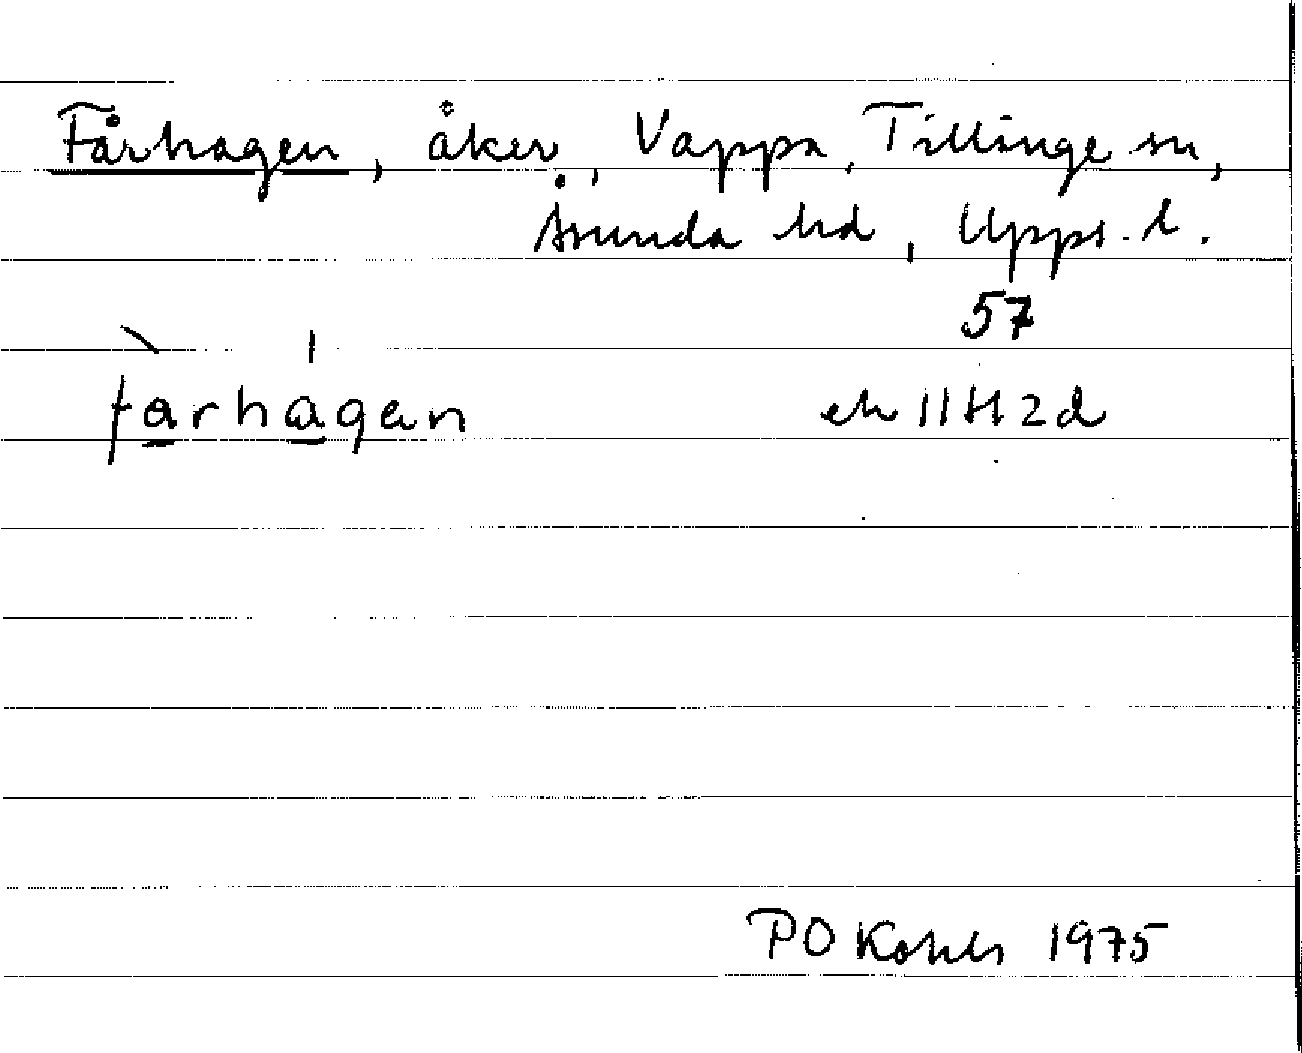 Fårhagen, åker, Vappa, Tillinge sn,
Åsunda hd, Upps. l.
57
fàrhágan
ek 11H2d
PO 1975